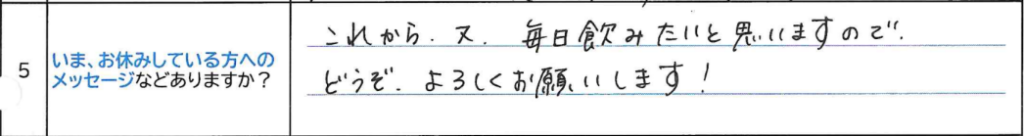 5
いま、お休みしている方への
メッセージなどありますか？
これから、又、毎日飲みたいと思いますので、
どうぞ、よろしくお願いします！